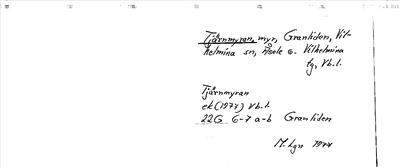 Tjärnmyran, myr, Granliden, Vil-
helmina sn, Åsele o. Vilhelmina
tg, Vb. l.
Tjärnmyran
ek (1974) Vb. l.
22G 6-7 a-b Granliden
M. Lgn 1974